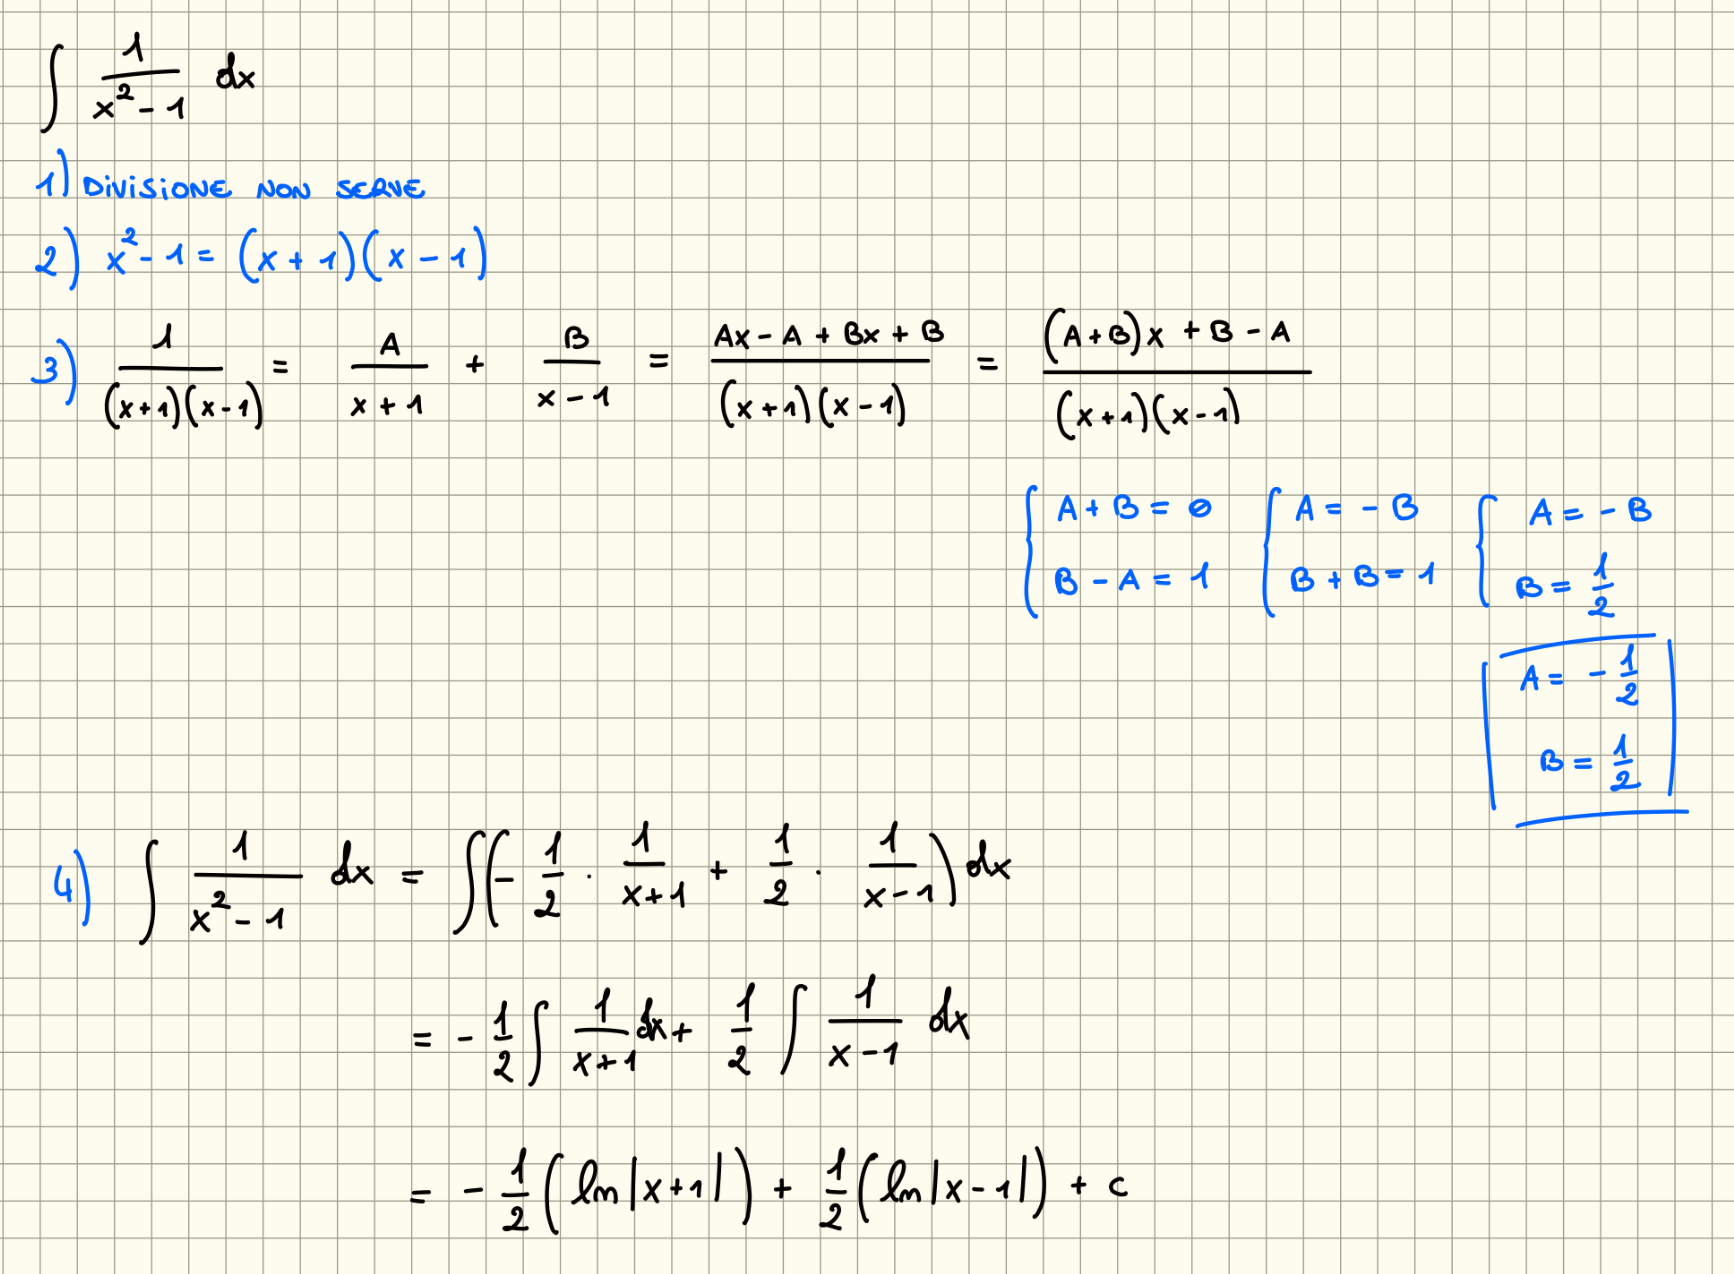 ∫ 1/(x² - 1) dx
1) DIVISIONE NON SERVE
2) x² - 1 = (x + 1)(x - 1)
3) 1/((x+1)(x-1)) = A/(x + 1) + B/(x - 1) = (Ax - A + Bx + B)/((x+1)(x-1)) = ((A+B)x + B - A)/((x+1)(x-1))
{ A + B = 0 { A = - B { A = - B
B - A = 1 B + B = 1 B = 1/2
A = - 1/2
B = 1/2
4) ∫ 1/(x² - 1) dx = ∫(- 1/2 · 1/(x+1) + 1/2 · 1/(x-1)) dx
= - 1/2 ∫ 1/(x+1) dx + 1/2 ∫ 1/(x-1) dx
= - 1/2 (ln|x+1|) + 1/2 (ln|x-1|) + c